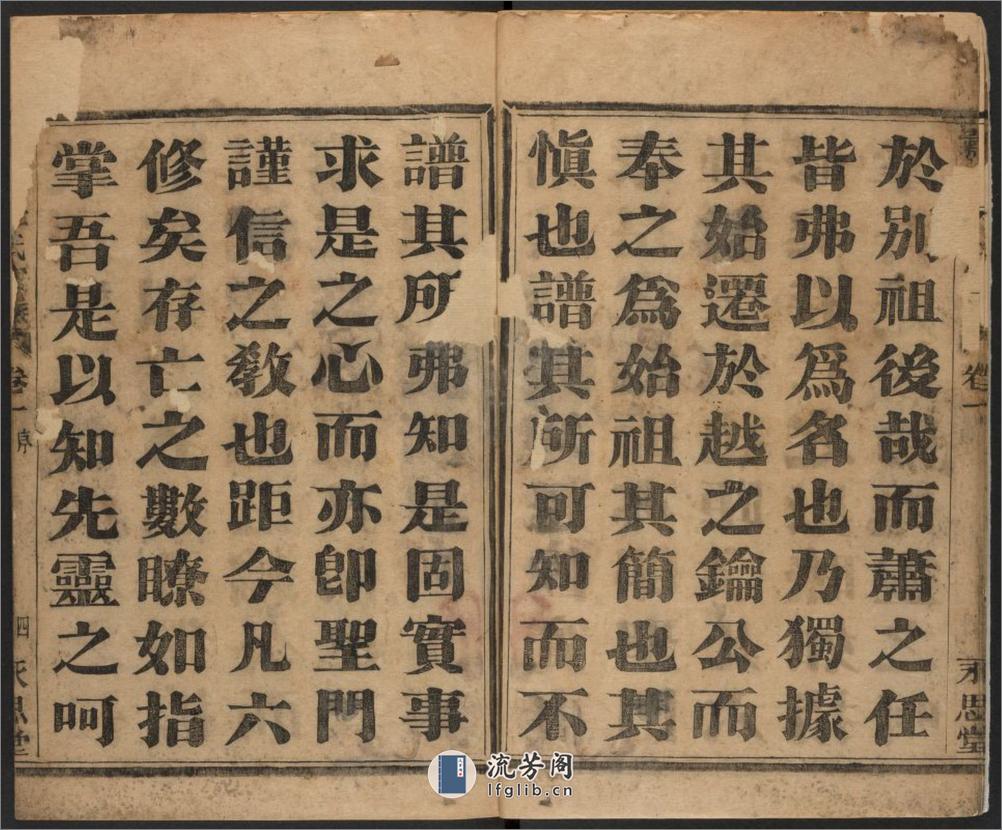 於別祖後哉而蕭之任
皆弗以爲名也乃獨據
其始遷於越之鑰公而
奉之爲始祖其簡也其
愼也譜其所可知而不
譜其所弗知是固實事
求是之心而亦卽聖門
謹信之敎也距今凡六
修矣存亡之數瞭如指
掌吾是以知先靈之呵
卷一
永思堂
卷一
序
四
永思堂
流芳阁
lfglib.cn